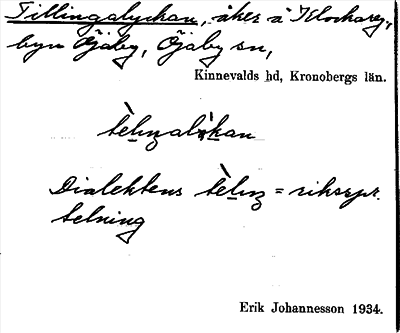 Tillingalyckan, åker å Klockareg.,
byn Öjaby, Öjaby sn,
Kinnevalds hd, Kronobergs län.
Dialektens = riksspr.
telning
Erik Johannesson 1934.